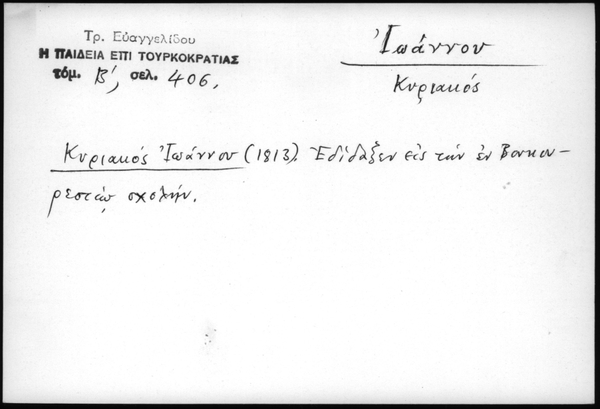 Τρ. Εὐαγγελίδου
Η ΠΑΙΔΕΙΑ ΕΠΙ ΤΟΥΡΚΟΚΡΑΤΙΑΣ
τόμ. Β', σελ. 406.
Ἰωάννου
Κυριακός
Κυριακός Ἰωάννου (1813). Ἐδίδαξεν εἰς τὴν ἐν Βουκου-
ρεστίῳ σχολήν.